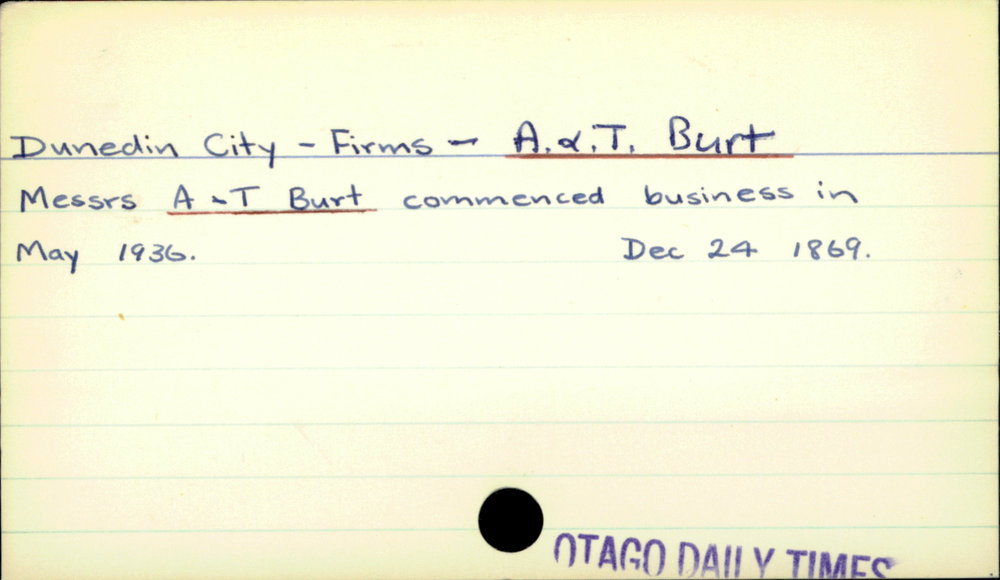 Dunedin City - Firms - A. & T. Burt
Messrs A & T Burt commenced business in
May 1936. Dec 24 1869.
OTAGO DAILY TIMES